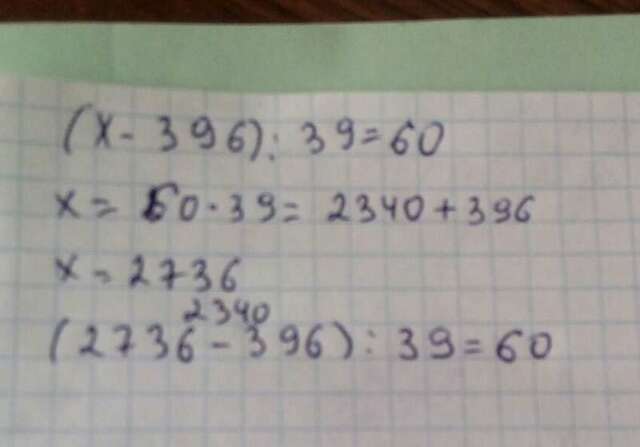 (x - 396) : 39 = 60
x = 60 · 39 = 2340 + 396
x = 2736
2340
(2736 - 396) : 39 = 60